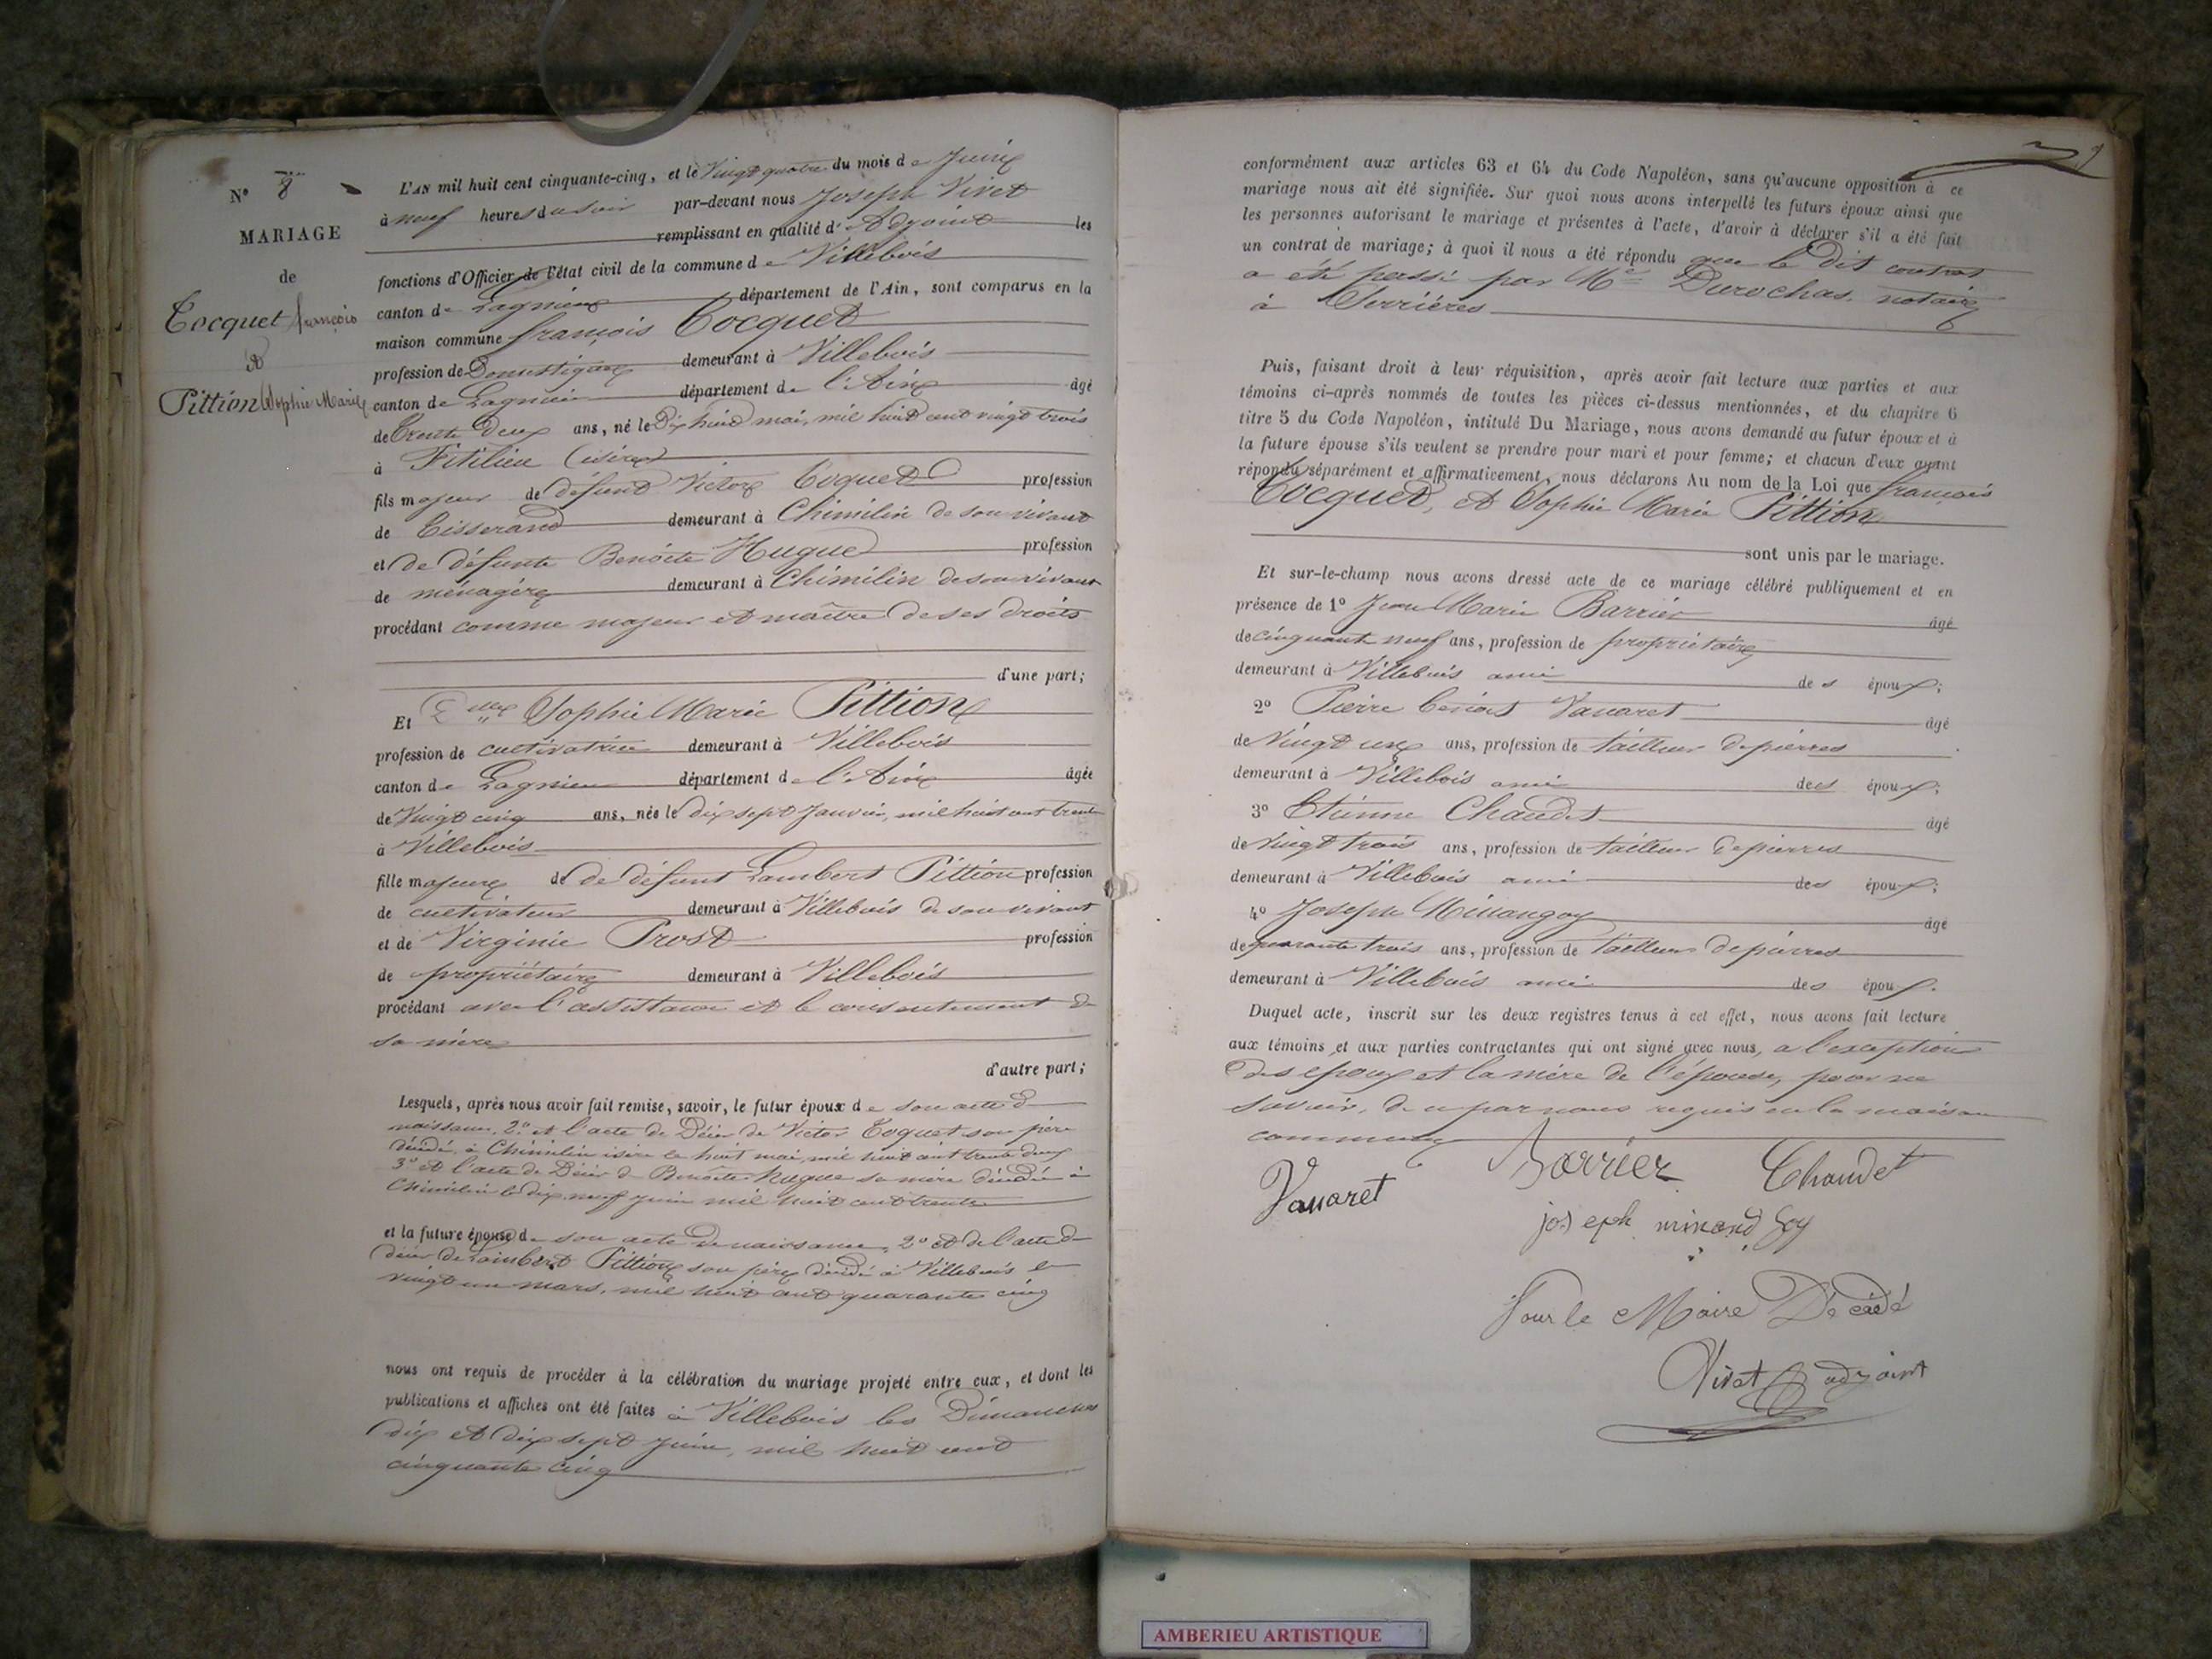 N° 8
MARIAGE
de
Cocquet françois
et
Pittion Sophie Marie
L'AN mil huit cent cinquante-cinq, et le Vingt quatre du mois de Juin
à neuf heures du soir par-devant nous Joseph Vivet
remplissant en qualité d'Adjoint les
fonctions d'Officier de l'état civil de la commune de Villebois
canton de Lagnieu département de l'Ain, sont comparus en la
maison commune françois Cocquet
profession de Domestique demeurant à Villebois
canton de Lagnieu département de l'Ain âgé
de trente deux ans, né le Dix huit mai, mil huit cent vingt trois
à Fitilieu (isère)
fils majeur de défunt Victor Coquet profession
de tisserand demeurant à Chimilin de son vivant
et de défunte Benoîte Hugue profession
de ménagère demeurant à Chimilin de son vivant
procédant comme majeur et maître de ses droits
d'une part;
Et Delle Sophie Marie Pittion
profession de cultivatrice demeurant à Villebois
canton de Lagnieu département de l'Ain âgée
de Vingt cinq ans, née le dix sept Janvier, mil huit cent trente
à Villebois
fille majeure de de défunt Lambert Pittion profession
de cultivateur demeurant à Villebois de son vivant
et de Virginie Prost profession
de propriétaire demeurant à Villebois
procédant avec l'assistance et le consentement de
sa mère
d'autre part;
Lesquels, après nous avoir fait remise, savoir, le futur époux de son acte de
naissance, 2° et l'acte de Décès de Victor Coquet son père
décédé à Chimilin isère le huit mai, mil huit cent trente deux
3° et l'acte de Décès de Benoîte hugue sa mère décédée à
Chimilin le dix neuf juin mil huit cent trente
et la future épouse de son acte de naissance, 2° et de l'acte de
décès de Lambert Pittion son père décédé à Villebois le
vingt un mars, mil huit cent quarante cinq
nous ont requis de procéder à la célébration du mariage projeté entre eux, et dont les
publications et affiches ont été faites à Villebois les Dimanches
dix et dix sept juin, mil huit cent
cinquante cinq
conformément aux articles 63 et 64 du Code Napoléon, sans qu'aucune opposition à ce
mariage nous ait été signifiée. Sur quoi nous avons interpellé les futurs époux ainsi que
les personnes autorisant le mariage et présentes à l'acte, d'avoir à déclarer s'il a été fait
un contrat de mariage; à quoi il nous a été répondu que le dit contrat
a été passé par Me Durochas, notaire
à Serrières
Puis, faisant droit à leur réquisition, après avoir fait lecture aux parties et aux
témoins ci-après nommés de toutes les pièces ci-dessus mentionnées, et du chapitre 6
titre 5 du Code Napoléon, intitulé Du Mariage, nous avons demandé au futur époux et à
la future épouse s'ils veulent se prendre pour mari et pour femme; et chacun d'eux ayant
répondu séparément et affirmativement, nous déclarons Au nom de la Loi que françois
Cocquet, et Sophie Marie Pittion
sont unis par le mariage.
Et sur-le-champ nous avons dressé acte de ce mariage célébré publiquement et en
présence de 1° Jean Marie Barrier âgé
de cinquante neuf ans, profession de propriétaire
demeurant à Villebois ami des époux;
2° Pierre benoit Vanaret âgé
de Vingt un ans, profession de tailleur de pierres
demeurant à Villebois ami des époux;
3° Etienne Chaudet âgé
de Vingt trois ans, profession de tailleur de pierres
demeurant à Villebois ami des époux;
4° Joseph Minangoy âgé
de quarante trois ans, profession de tailleur de pierres
demeurant à Villebois ami des époux.
Duquel acte, inscrit sur les deux registres tenus à cet effet, nous avons fait lecture
aux témoins et aux parties contractantes qui ont signé avec nous, a l'exception
des époux et la mère de l'épouse, pour ne
savoir, de ce par nous requis en la maison
commune
Vanaret Barrier Chaudet
joseph minand Goy
Pour le Maire Décédé
Vivet adjoint
AMBERIEU ARTISTIQUE